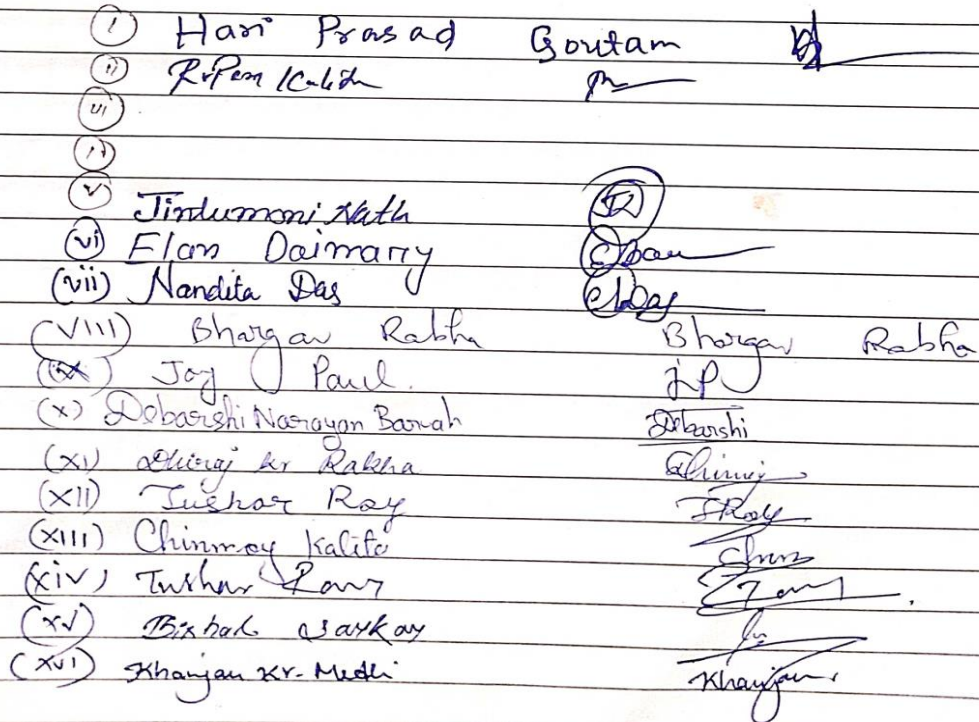 (i) Hari Prasad Goutam
(ii) Ripen Kalita
(iii)
(iv)
(v) Jintumoni Nath
(vi) Elan Daimary Elan
(vii) Nandita Das NDas
(VIII) Bhargav Rabha Bhargav Rabha
(ix) Joy Paul. J.P
(x) Debarshi Narayan Baruah Debarshi
(XI) Dhiraj kr Rabha Dhiraj
(XII) Tushar Ray TRay
(XIII) Chinmoy Kalita Chin
(xiv)
(xv) Bishal Sarkar
(xvi) Khanjan Kr. Medhi Khanjan